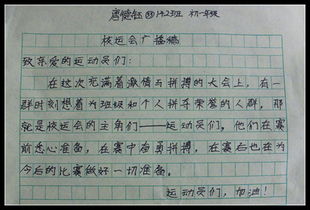 唐健钰 1423班 初一年级
校运会广播稿
致亲爱的运动员们:
在这次充满着激情与拼搏的大会上,有一
群时刻想着为班级和个人拼夺荣誉的人群,那
就是校运会的主角们——运动员们。他们在赛
前悉心准备,在赛中奋勇拼搏,在赛后也在为
今后的比赛做好一切准备。
运动员们,加油!